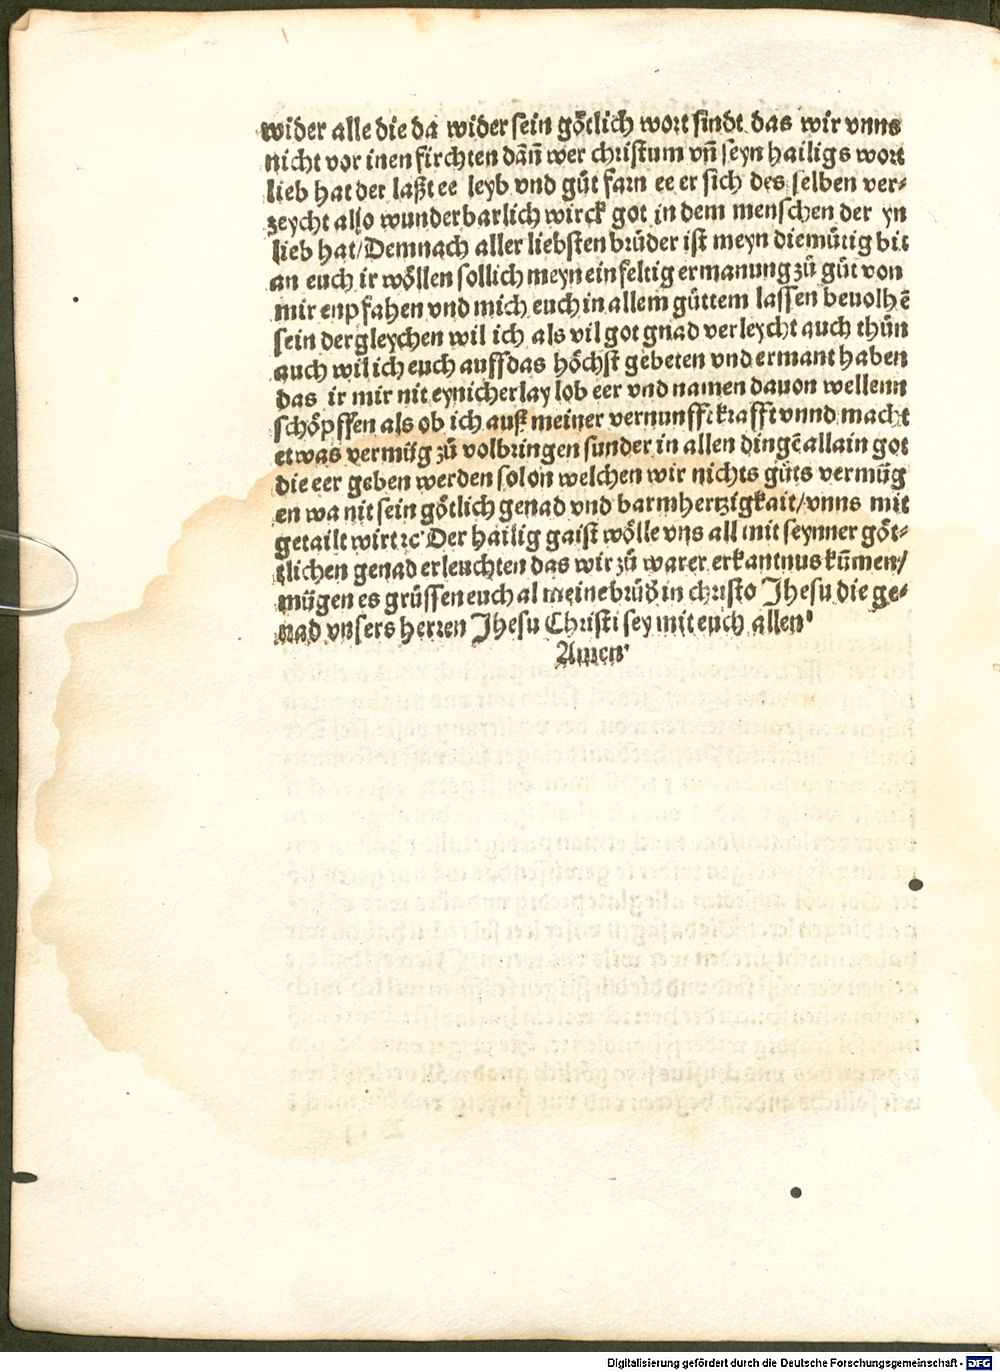 wider alle die da wider sein goͤtlich wort sindt das wir vnns
nicht vor inen firchten dañ wer christum vñ seyn hailigs wort
lieb hat der laßt ee leyb vnd guͤt farn ee er sich des selben ver⸗
zeycht also wunderbarlich wirck got in dem menschen der yn
lieb hat/ Demnach aller liebsten bruͤder ist meyn diemuͤtig bit
an euch ir woͤllen sollich meyn einfeltig ermanung zuͦ guͤt von
mir enpfahen vnd mich euch in allem guͤttem lassen beuolhẽ
sein dergleychen wil ich als vil got gnad verleycht auch thuͤn
auch wil ich euch auff das hoͤchst gebeten vnd ermant haben
das ir mir nit eynicherlay lob eer vnd namen dauon wellenn
schoͤpffen als ob ich auß meiner vernunfft krafft vnnd macht
etwas vermuͤg zuͦ volbringen sunder in allen dingẽ allain got
die eer geben werden sol on welchen wir nichts guͤts vermuͤg
en wa nit sein goͤtlich genad vnd barmhertzigkait/ vnns mit
getailt wirt ꝛc. Der hailig gaist woͤlle vns all mit seynner goͤt⸗
tlichen genad erleuchten das wir zuͦ warer erkantnus kuͤmen/
muͤgen es gruͤssen euch al meine bruͤd in christo Jhesu die ge⸗
nad vnsers herren Jhesu Christi sey mit euch allen.
Amen.
Digitalisierung gefördert durch die Deutsche Forschungsgemeinschaft - DFG